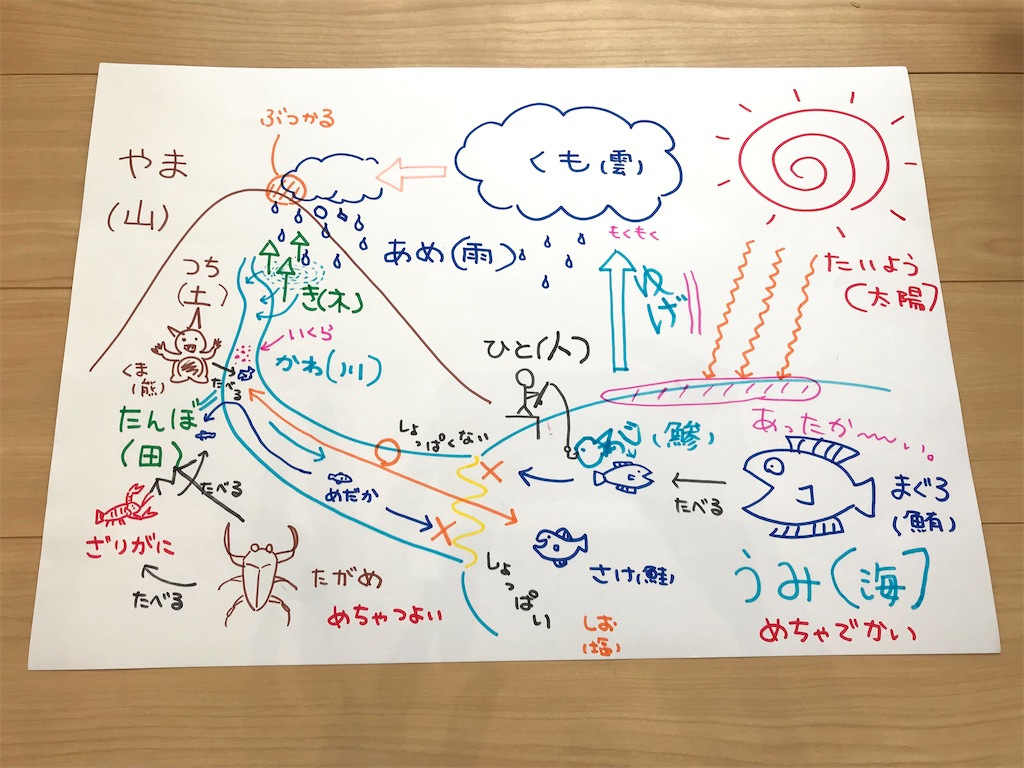 ぶつかる
やま
(山)
くも(雲)
もくもく
あめ(雨)
ゆげ
たいよう
(太陽)
つち
(土)
き(木)
いくら
かわ(川)
くま
(熊)
たべる
ひと(人)
たんぼ
(田)
しょっぱくない
あじ(鯵)
あったか〜い。
たべる
まぐろ
(鮪)
たべる
めだか
ざりがに
たべる
たがめ
めちゃつよい
さけ(鮭)
しょっぱい
しお
(塩)
うみ(海)
めちゃでかい